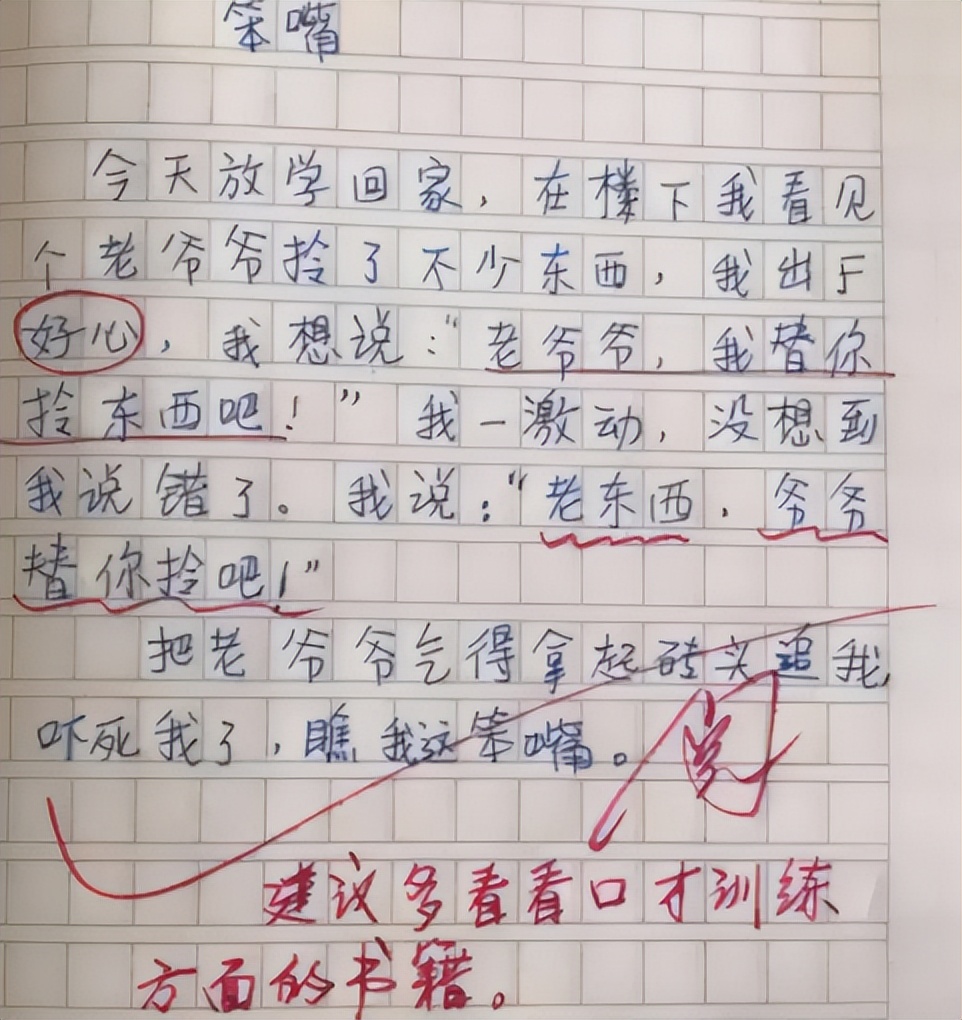 笨嘴
今天放学回家，在楼下我看见
个老爷爷拎了不少东西，我出于
好心，我想说：“老爷爷，我替你
拎东西吧！”我一激动，没想到
我说错了。我说：“老东西，爷爷
替你拎吧！”
把老爷爷气得拿起砖头追我
吓死我了，瞧我这笨嘴。
阅
建议多看看口才训练
方面的书籍。